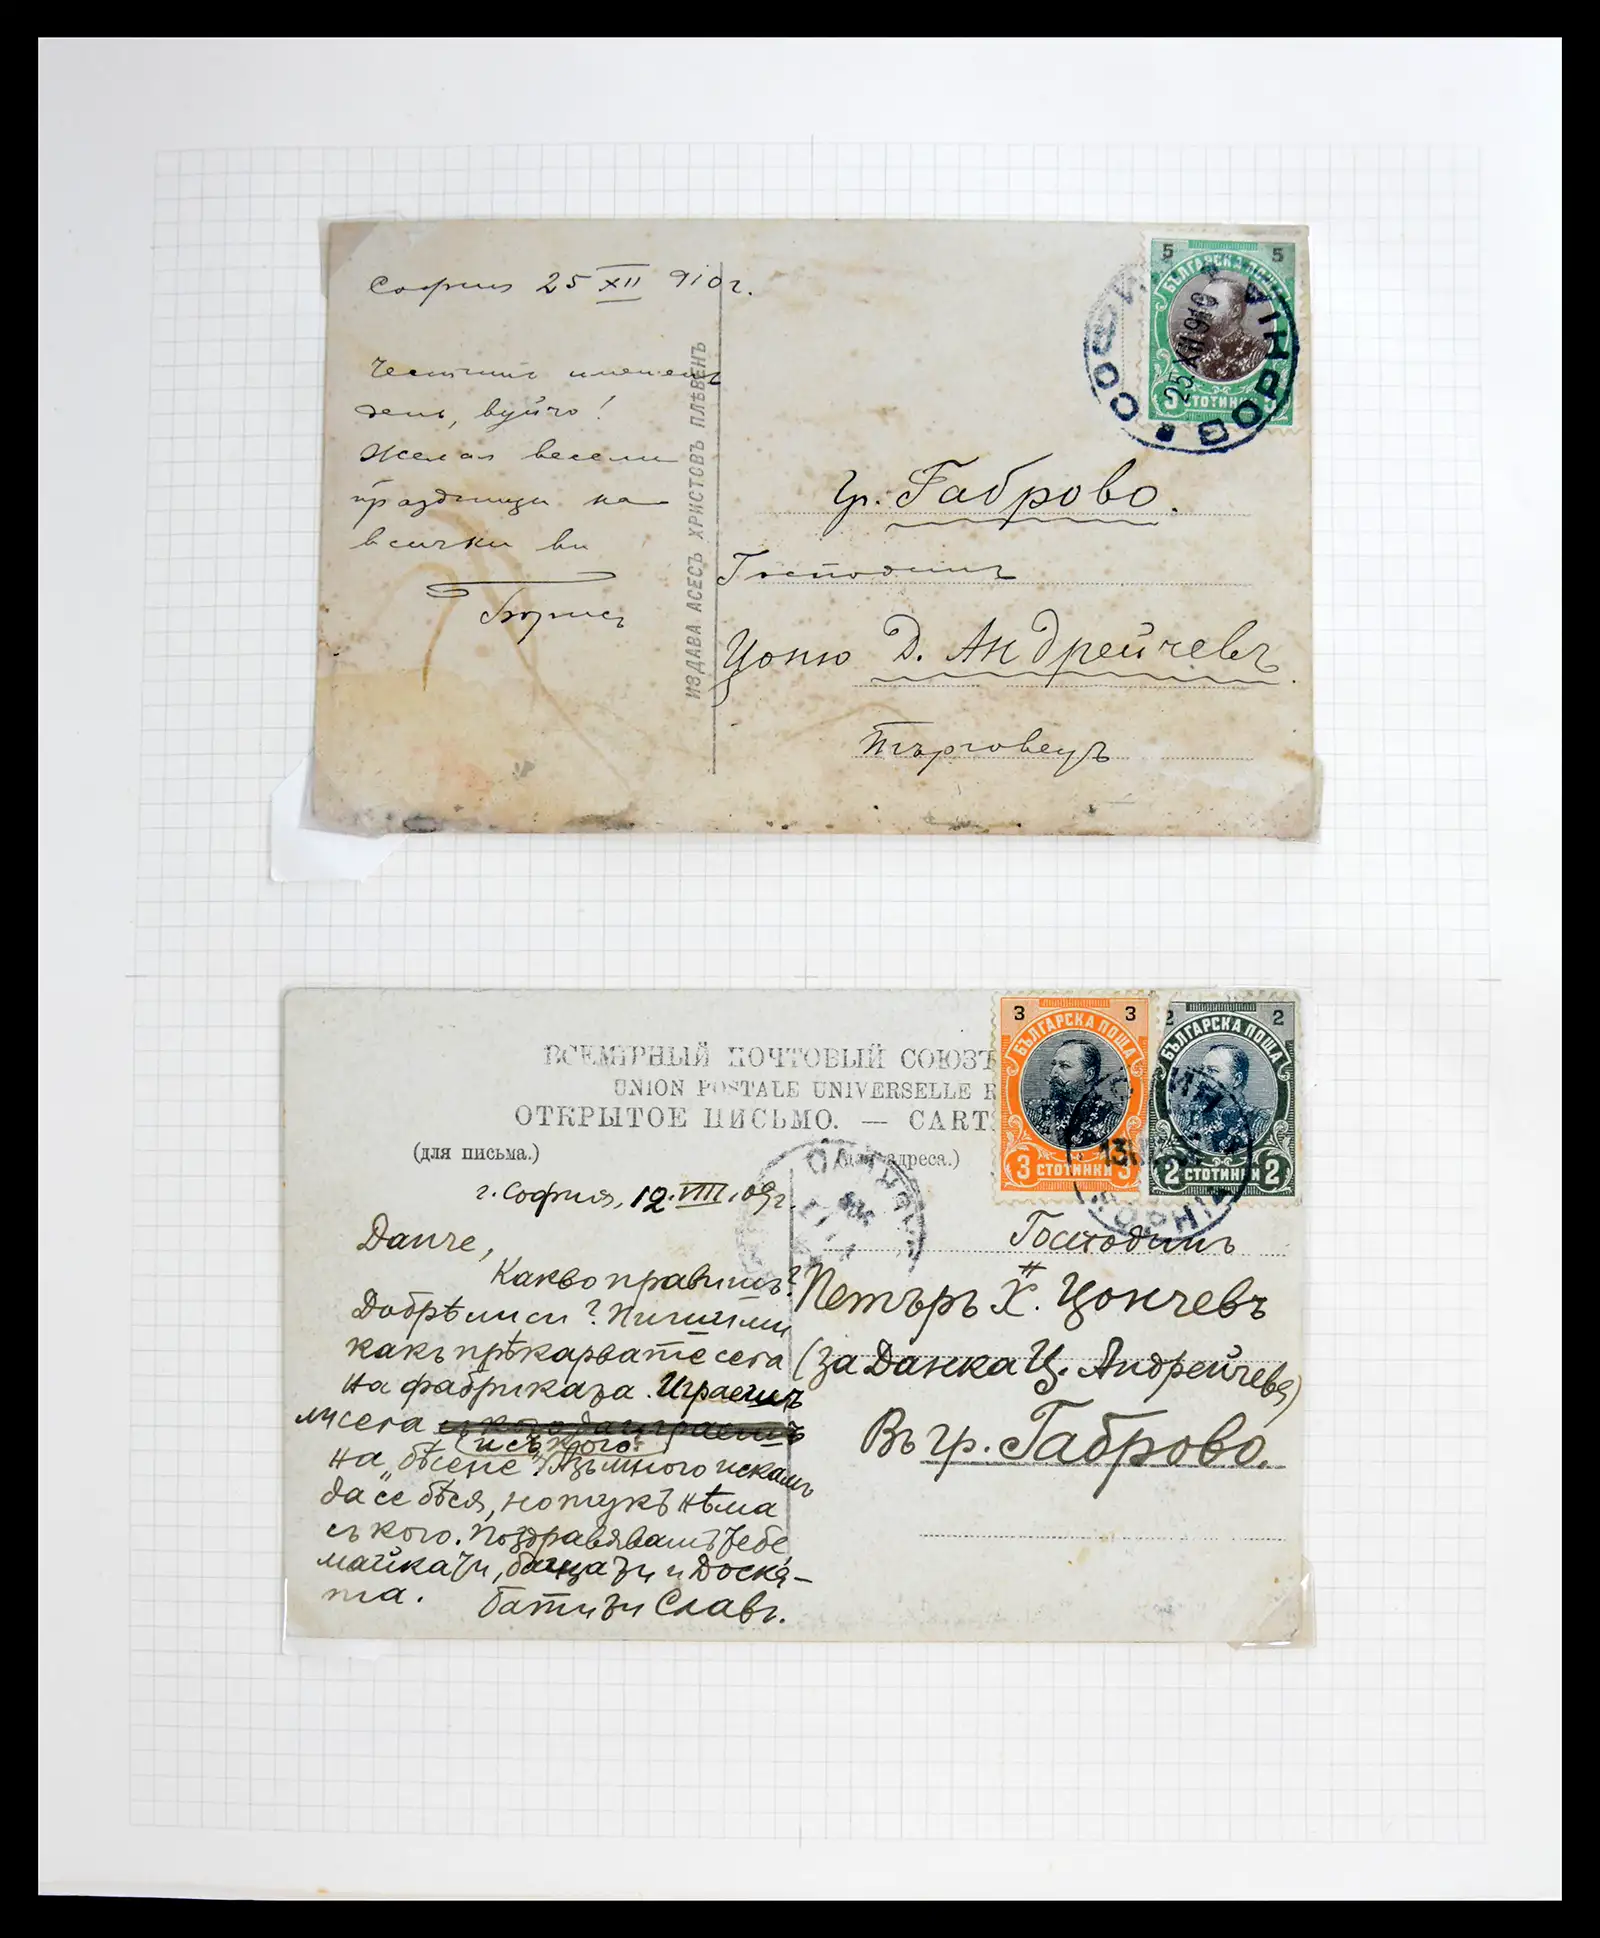 София 25 XII 910 г.
Честитъ именемъ
день, вуйчо!
Желая весели
праздници на
всички ви
Борисъ
ИЗДАВА АСЕСЪ ХРИСТОВЪ ПЛѢВЕНЪ
5 5
БЪЛГАРСКА ПОЩА
5 СТОТИНКИ 5
25 XII 910
гр. Габрово.
Господинъ
Цоню Д. Андрейчевъ.
Търговецъ
ВСЕМІРНЫЙ ПОЧТОВЫЙ СОЮЗЪ
UNION POSTALE UNIVERSELLE R
ОТКРЫТОЕ ПИСЬМО. — CART
(для письма.)
адреса.)
3 3
БЪЛГАРСКА ПОЩА
3 СТОТИНКИ 3
2 2
БЪЛГАРСКА ПОЩА
2 СТОТИНКИ 2
г. София, 12.VIII.09 г.
Данче,
Какво правишъ?
Добрѣ ли си? Пиши ми
какъ прѣкарвате сега
на фабриката. Играешъ
ли сега
(и съ кого?)
на „бѣсене“? Азъ много искамъ
да се бѣся, но тукъ нѣма
съ кого. Поздравявамъ тебе,
майка ти, баща ти и Доскя-
та. Бати ти Славъ.
Господинъ
Петъръ Х. Цончевъ
(за Данка Ц. Андрейчева)
Въ гр. Габрово.